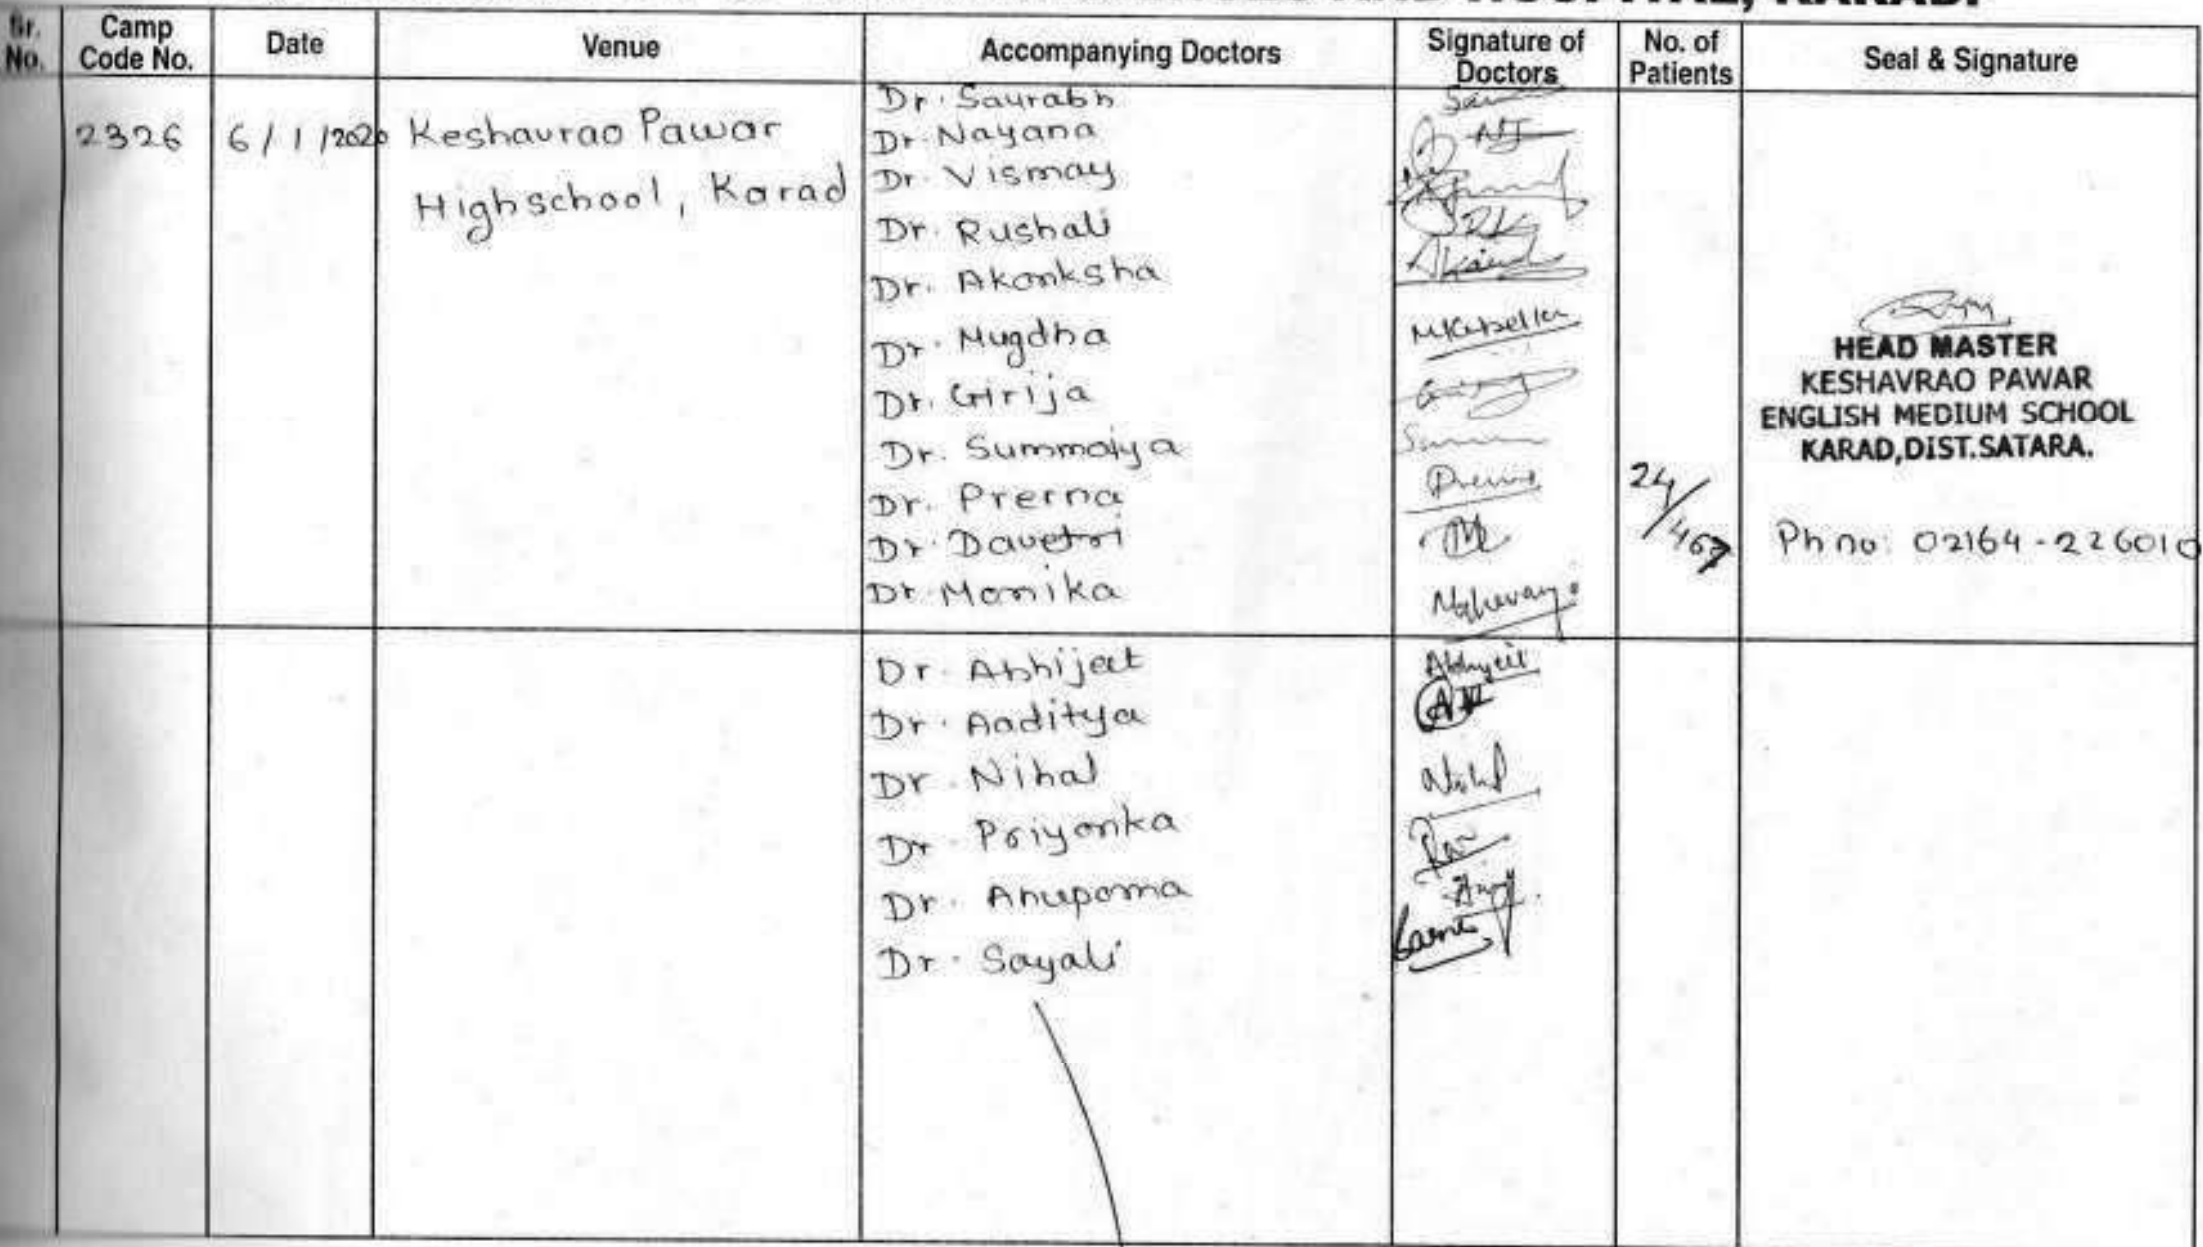 HOSPITAL, KARAD.
Sr. No. Camp Code No. Date Venue Accompanying Doctors Signature of Doctors No. of Patients Seal & Signature
2326 6/1/2020 Keshavrao Pawar
Highschool, Karad
Dr. Saurabh
Dr. Nayana
Dr. Vismay
Dr. Rushali
Dr. Akanksha
Dr. Mugdha
Dr. Girija
Dr. Summaiya
Dr. Prerna
Dr. Davetri
Dr. Monika
24/467
HEAD MASTER
KESHAVRAO PAWAR
ENGLISH MEDIUM SCHOOL
KARAD,DIST.SATARA.
Ph no: 02164-226010
Dr. Abhijeet
Abhijeet
Dr. Aaditya
Dr. Nihal
Nihal
Dr. Priyanka
Dr. Anupama
Dr. Sayali